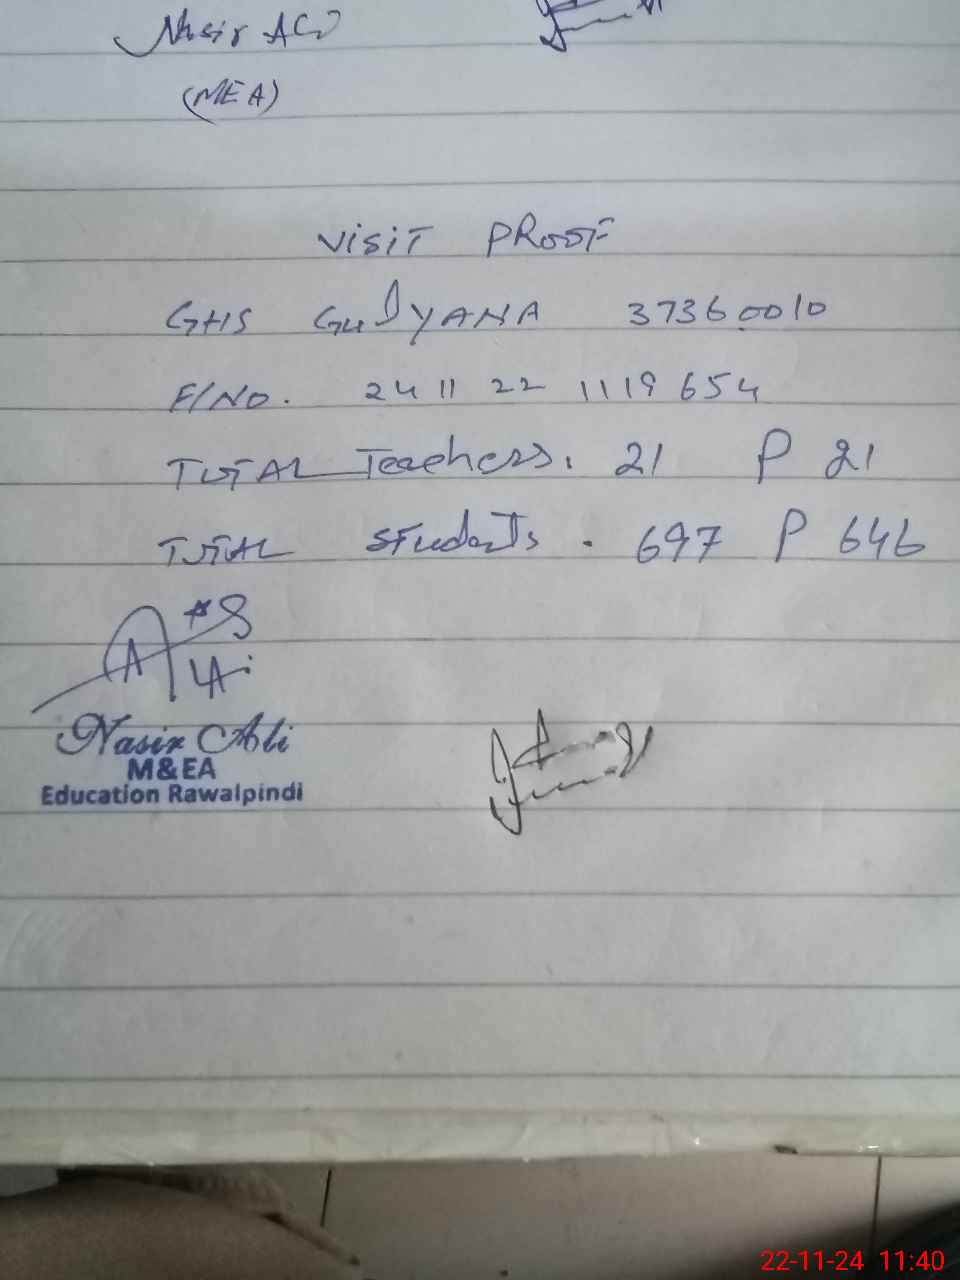 Nasir Ali
(MEA)
VISIT PROOF
GHS GulYANA 37360010
F/No. 24 11 22 1119 654
TOTAL Teachers. 21 P 21
TOTAL Students. 697 P 646
Nasir Ali
M&EA
Education Rawalpindi
22-11-24 11:40